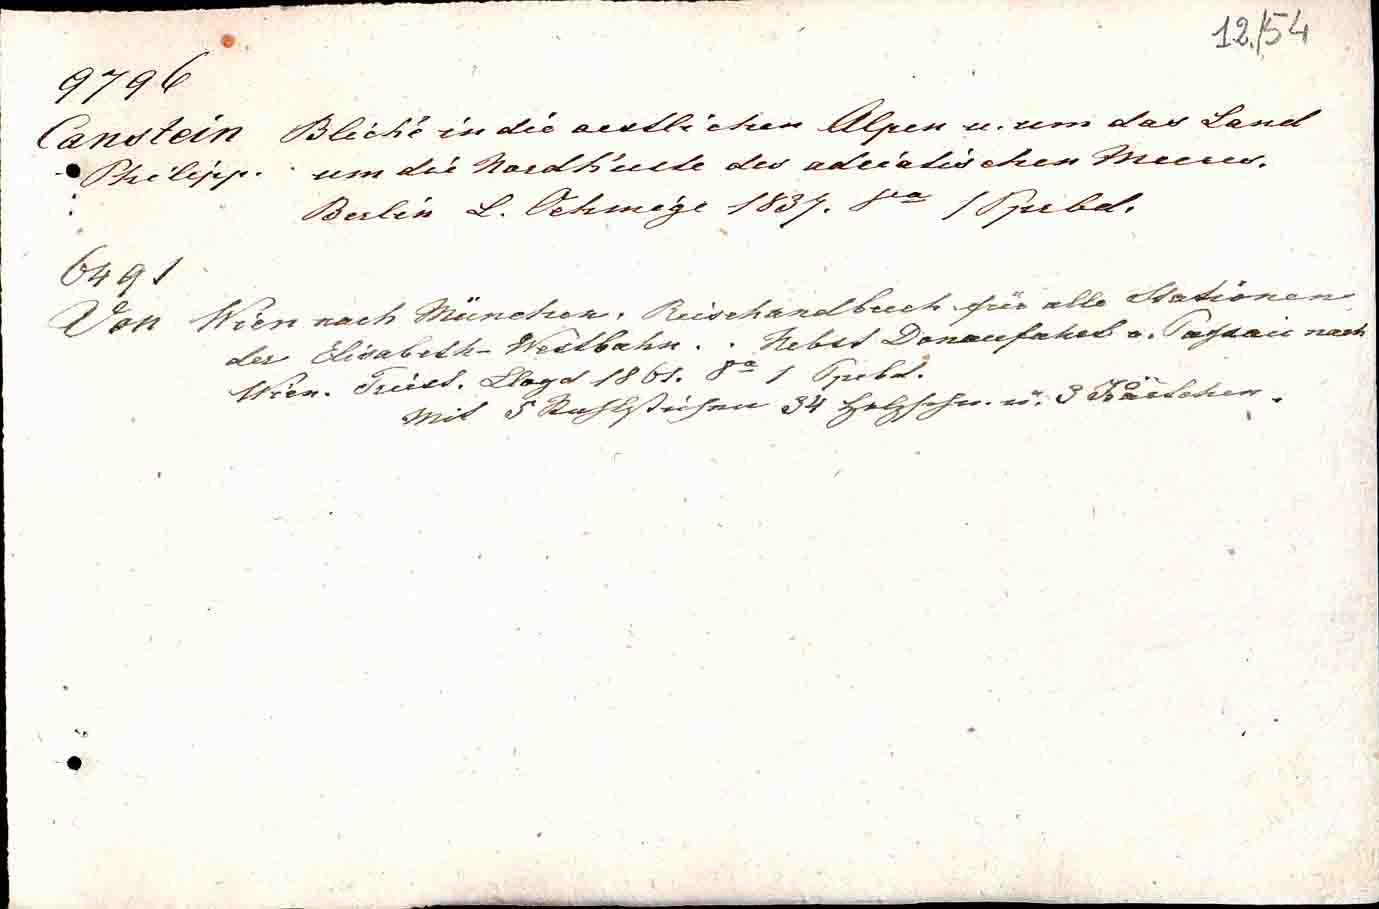 12/54
9796
Canstein Blicke in die oestlichen Alpen u. um das Land
Philipp. um die Nordküste des adriatischen Meeres.
Berlin L. Oehmige 1837. 8va 1 Ppebd.
6491
Von Wien nach München. Reisehandbuch für alle Stationen
der Elisabeth-Westbahn. . Nebst Donaufahrt v. Passau nach
Wien. Triest. Lloyd 1861. 8a 1 Ppebd.
Mit 5 Stahlstichen 34 Holzschn. u. 3 Kärtchen.